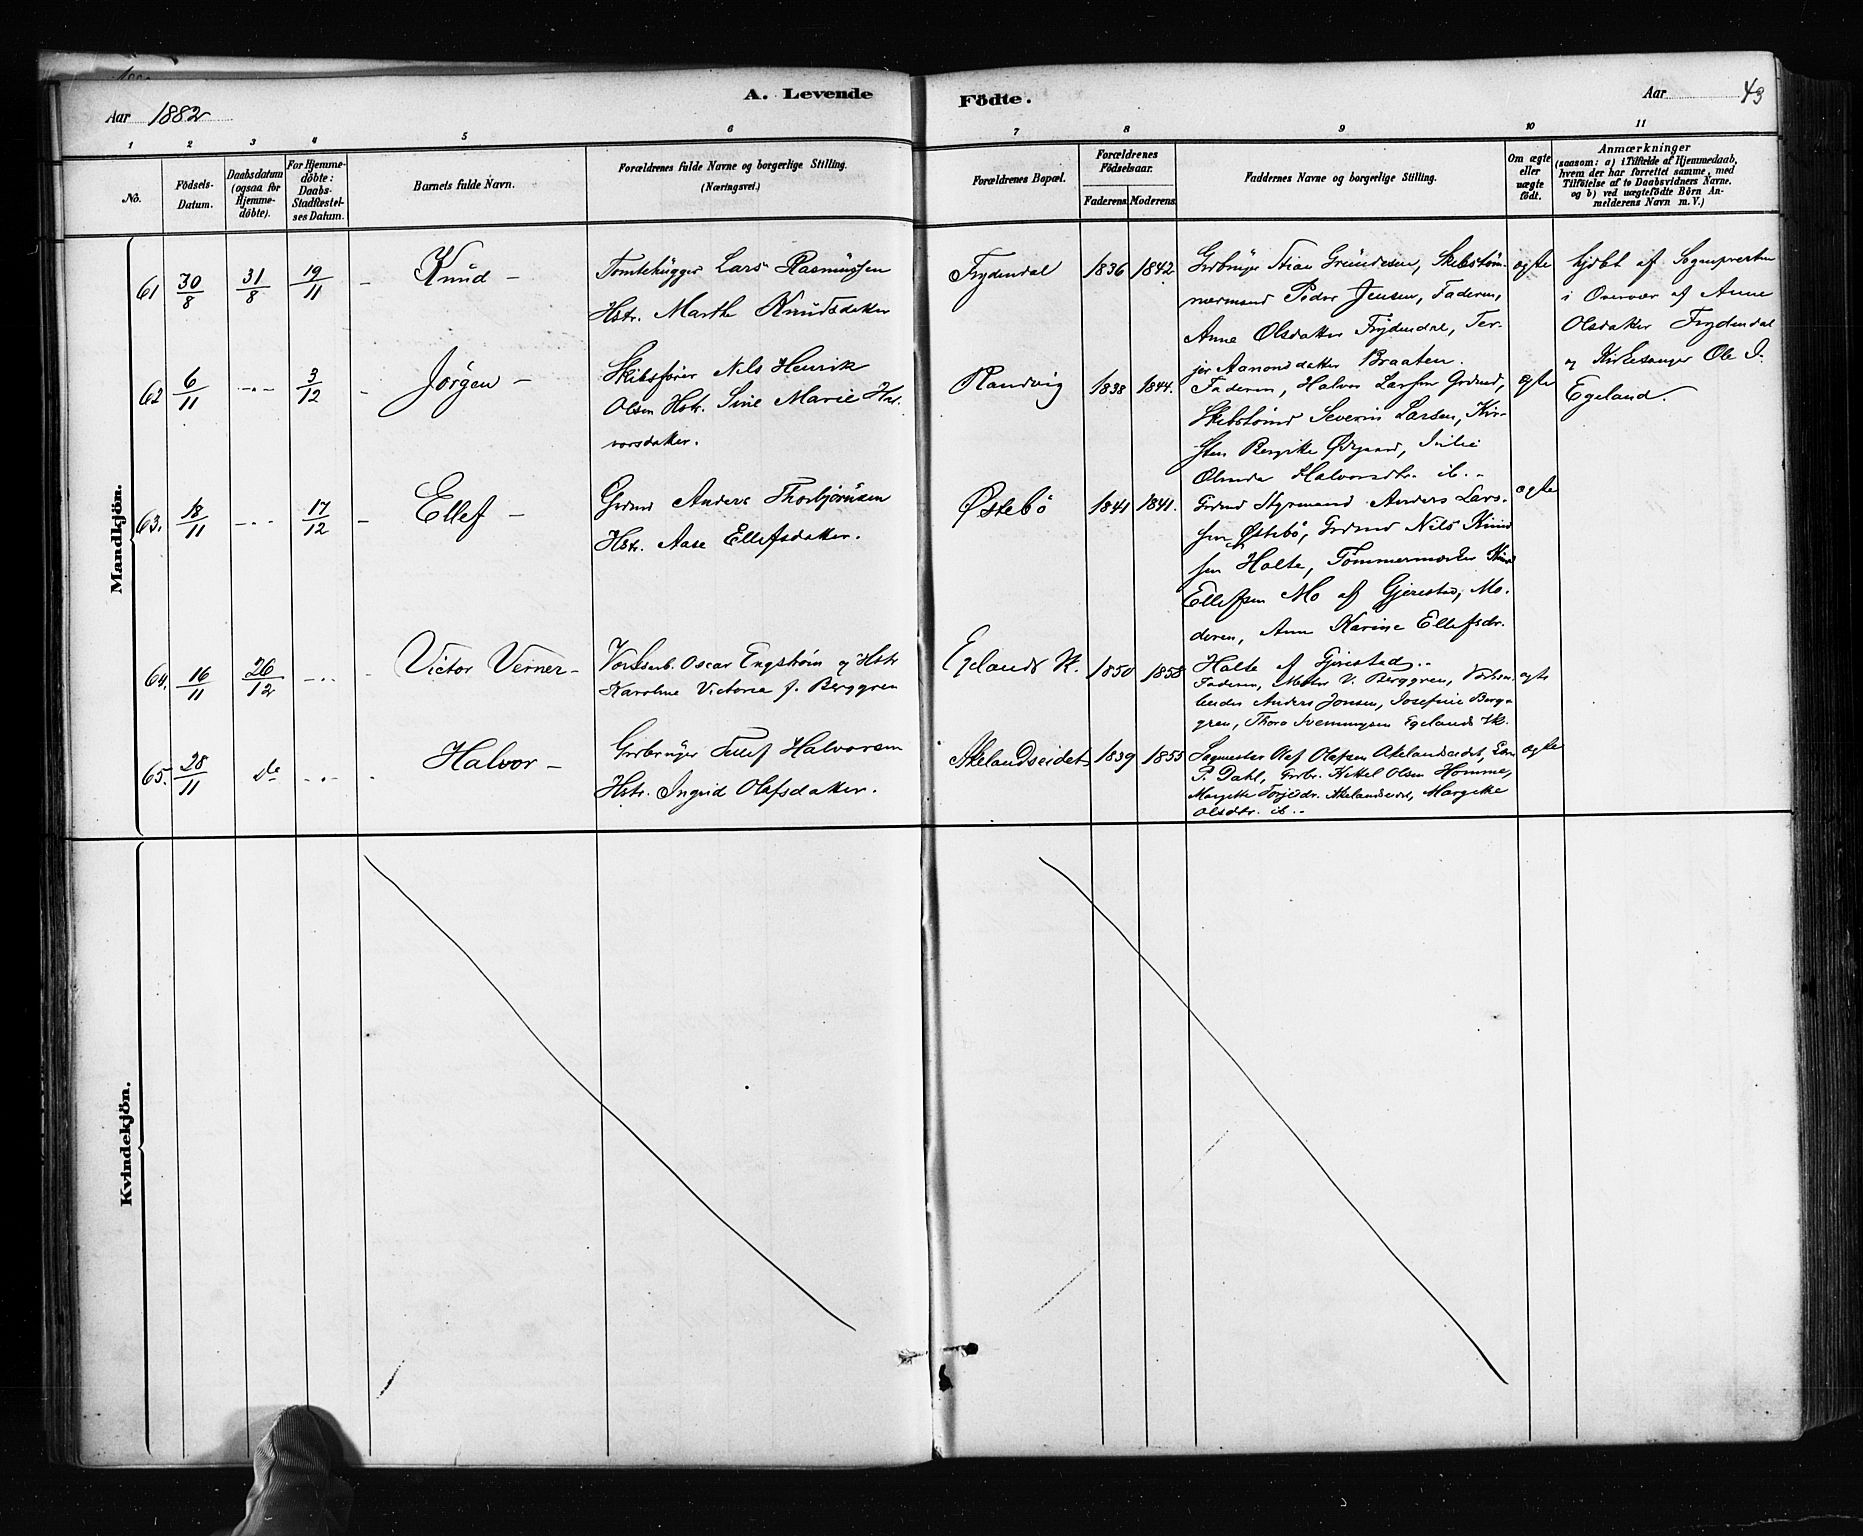 A. Levende
Födte.
Aar 1882
Aar
43
1
2
3
4
5
6
7
8
9
10
11
No.
Födsels-
Datum.
Daabsdatum
(ogsaa for
Hjemme-
döbte).
For Hjemme-
döbte:
Daabs-
Stadfæstel-
ses Datum.
Barnets fulde Navn.
Forældrenes fulde Navne og borgerlige Stilling.
(Næringsvei.)
Forældrenes Bopæl.
Forældrenes
Födselsaar.
Faderens
Moderens.
Faddernes Navne og borgerlige Stilling.
Om ægte
eller
uægte
födt.
Anmærkninger
(saasom: a) i Tilfælde af Hjemmedaab,
hvem der har forrettet samme, med
Tilföielse af to Daabsvidners Navne,
og b) ved uægtefödte Börn An-
melderens Navn m. V.)
Mandkjön.
61
30/8
31/8
19/11
Knud
Tomtehugger Lars Rasmussen
Hstr. Marthe Knudsdatter
Frydendal
1836
1842
Grdbruger Stian Grundesen, Skibstöm-
mermand Peder Jensen, Faderen,
Anne Olsdatter Frydendal, Ter-
jer Aanonsdatter Braaten.
ægte
hjdbt af Sognepresten
i Overvær af Anne
Olsdatter Frydendal
og Kirkesanger Ole I.
Egeland.
62
6/11
3/12
Jörgen
Skibsförer Nils Henrik
Olsen Hstr. Sine Marie Hal-
vorsdatter.
Randvig
1838
1844.
Faderen, Halvor Larsen Grdmd,
Skibstömd Severin Larsen, Kir-
sten Bergitte Ødegaard, Julie
Olmda Halvorsdtr. ib.
ægte
63.
18/11
17/12
Ellef
Grdmd Anders Thorbjörnsen
Hstr. Aase Ellefsdatter.
Østebö
1841
1841.
Grdmd Styrmand Anders Lars-
sen Østebö, Grdmd Nils Knud
sen Holte, Tömmermester Knud
Ellefsen Mo af Gjerestad, Mo-
deren, Anne Karine Ellefsdr.
Holte af Gjerestad.
ægte
64.
16/11
26/12
Victor Verner
Værksarb. Oscar Engström og Hstr
Karoline Victoria f. Berggren
Egelands V.
1850
1858
Faderen, Mester V. Berggren, Værksar-
beider Anders Jonsen, Josefine Berg-
gren, Thora Svenningsen Egelands Vk.
ægte
65.
28/11
Do
Halvor
Grdbruger Tellef Halvorsen
Hstr. Ingrid Olafsdatter.
Akelandseidet
1839
1855
Sagmester Olaf Olafsen Akelandseidet,
P. Dahl, Grdbr. Kittel Olsen Homme,
Margitte Torjesdr. Akelandseidet, Margitte
Olsdtr. ib.
ægte
Kvindekjön.